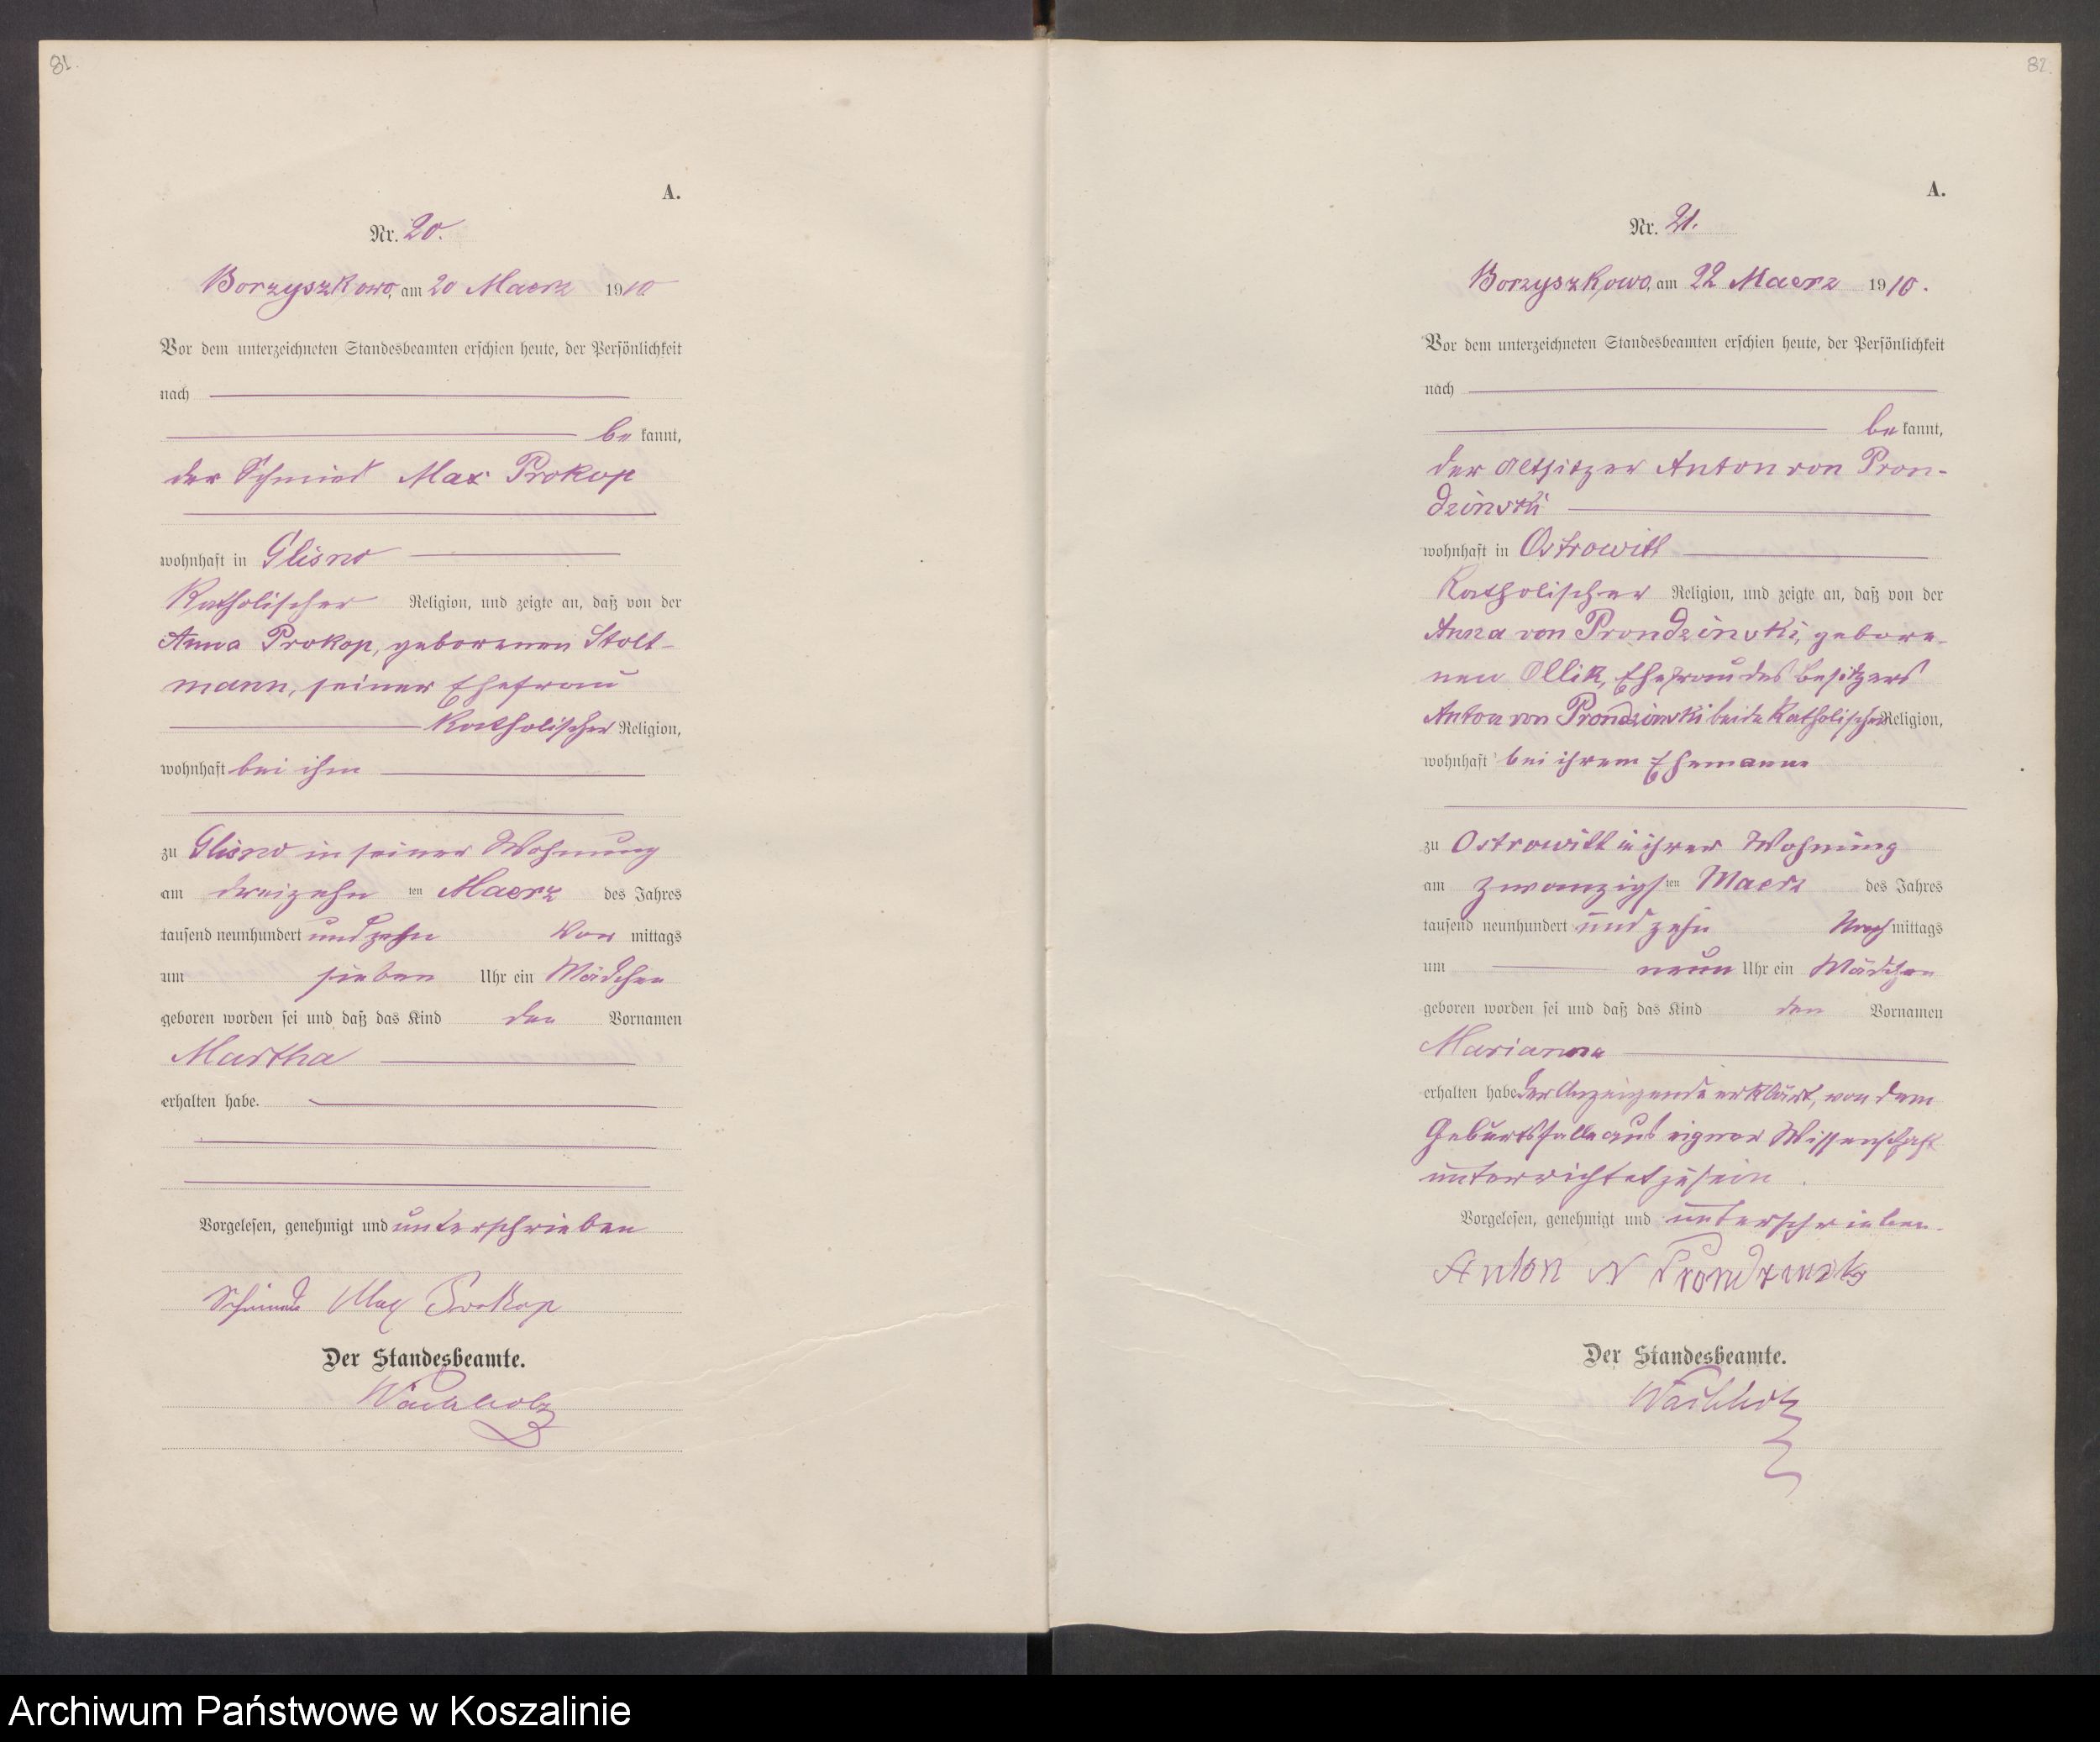 81.
A.
Nr. 20.
Borzyszkowo, am 20 Maerz 1910
Vor dem unterzeichneten Standesbeamten erschien heute, der Persönlichkeit
nach
be kannt,
der Schmied Max Prokop
wohnhaft in Glisno
Katholischer Religion, und zeigte an, daß von der
Anna Prokop, geborenen Stolt-
mann, seiner Ehefrau
Katholischer Religion,
wohnhaft bei ihm
zu Glisno in seiner Wohnung
am dreizehn ten Maerz des Jahres
tausend neunhundert und zehn Vor mittags
um sieben Uhr ein Mädchen
geboren worden sei und daß das Kind den Vornamen
Martha
erhalten habe.
Vorgelesen, genehmigt und unterschrieben
Max Prokop
Der Standesbeamte.
82.
A.
Nr. 21.
Borzyszkowo, am 22 Maerz 1910.
Vor dem unterzeichneten Standesbeamten erschien heute, der Persönlichkeit
nach
be kannt,
der Altsitzer Anton von Pron-
dzinski
wohnhaft in Ostrowitt
Katholischer Religion, und zeigte an, daß von der
Anna von Prondzinski, gebore-
nen Ollik, Ehefrau des Besitzers
Anton von Prondzinski beide Katholischer Religion,
wohnhaft bei ihrem Ehemanne
zu Ostrowitt in ihrer Wohnung
am zwanzigs ten Maerz des Jahres
tausend neunhundert und zehn Nach mittags
um neun Uhr ein Mädchen
geboren worden sei und daß das Kind den Vornamen
Marianna
erhalten habe. Der Anzeigende erklärt, von dem
Geburtsfalle aus eigner Wissenschaft
unterrichtet zu sein.
Vorgelesen, genehmigt und unterschrieben.
Anton v Prondzinski
Der Standesbeamte.
Archiwum Państwowe w Koszalinie